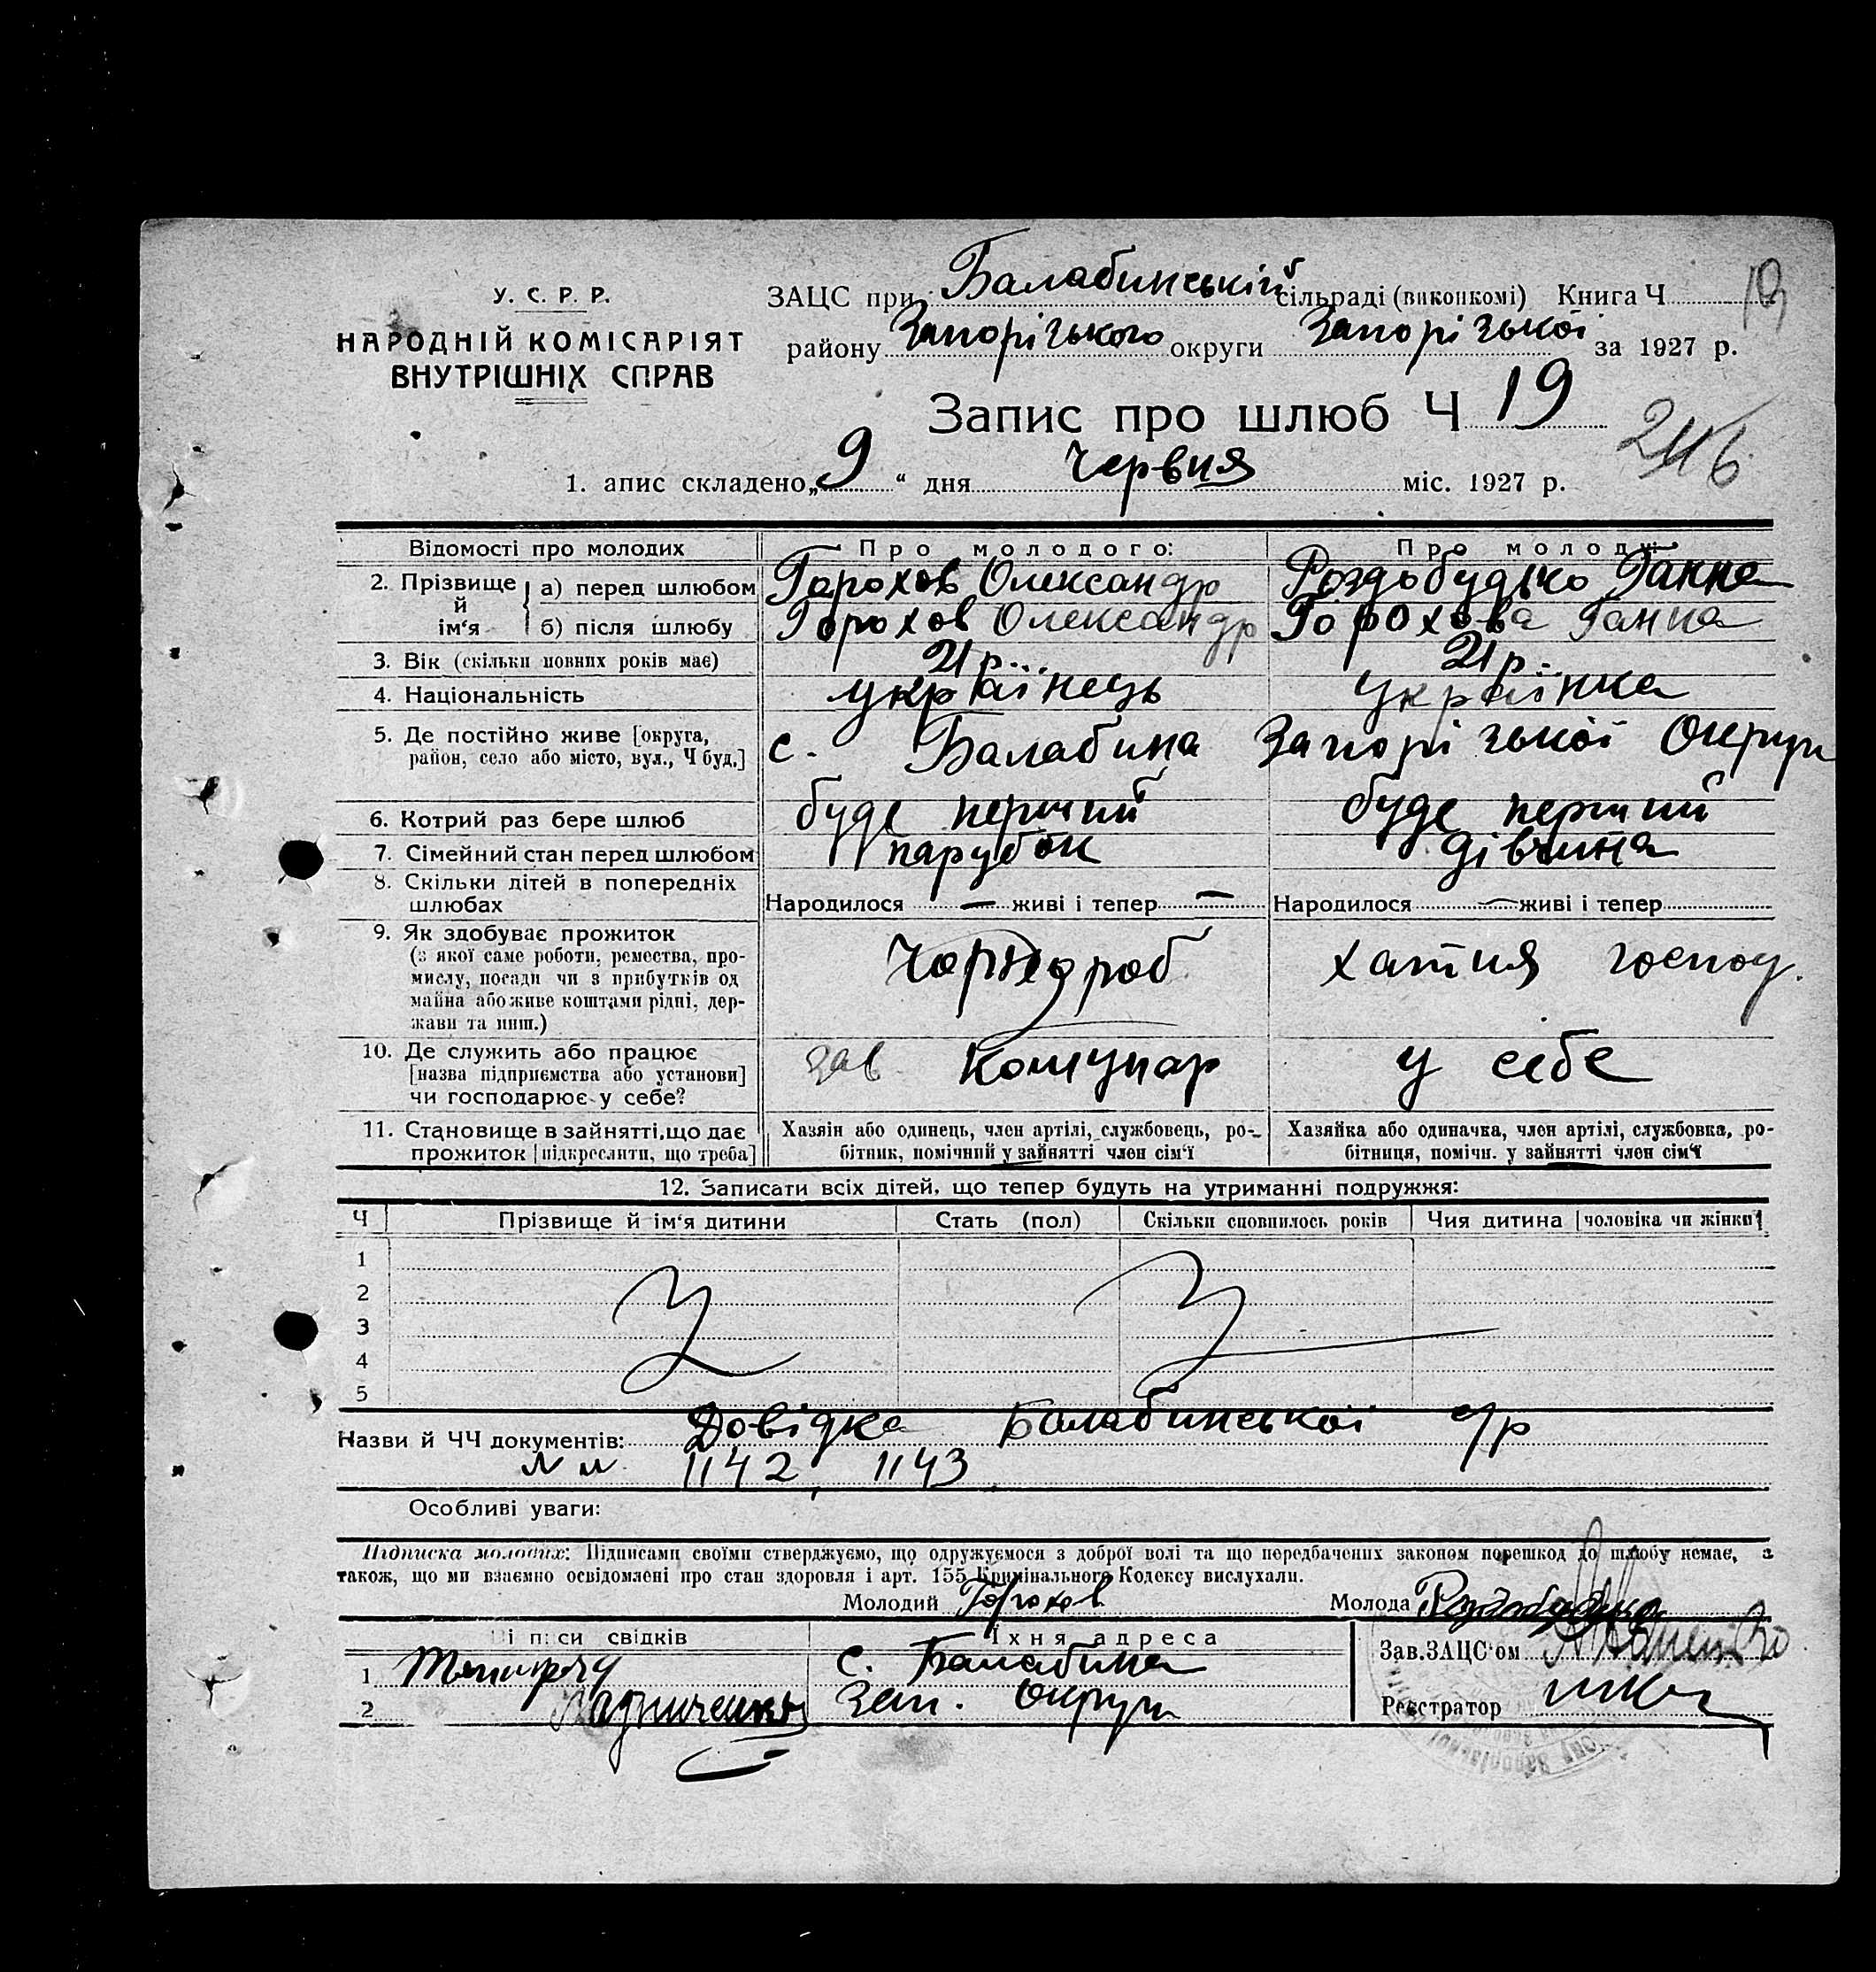 У. С. Р. Р.
НАРОДНІЙ КОМІСАРІЯТ
ВНУТРІШНІХ СПРАВ
ЗАЦС при Балабинській сільраді (виконкомі) Книга Ч
району Запорізького округи Запорізької за 1927 р.
Запис про шлюб Ч 19
246
1. апис складено „9“ дня Червня міс. 1927 р.
Відомості про молодих
Про молодого:
Про молоду:
2. Прізвище й ім‘я
а) перед шлюбом
Горохов Олександр
Роздобудько Ганна
б) після шлюбу
Горохов Олександр
Горохова Ганна
3. Вік (скільки повних років має)
21 р.
21 р.
4. Національність
українець
українка
5. Де постійно живе [округа,
район, село або місто, вул., Ч буд.]
с. Балабина Запорізької Округи
6. Котрий раз бере шлюб
буде перший
буде перший
7. Сімейний стан перед шлюбом
парубок
дівчина
8. Скільки дітей в попередніх
шлюбах
Народилося — живі і тепер —
Народилося — живі і тепер
9. Як здобуває прожиток
(з якої саме роботи, ремества, про-
мислу, посади чи з прибутків од
майна або живе коштами рідні, дер-
жави та инш.)
Чорнороб
хатня господ.
10. Де служить або працює
[назва підприємства або установи]
чи господарює у себе?
зав. Комунар
у себе
11. Становище в зайнятті, що дає
прожиток [підкреслити, що треба]
Хазяін або одинець, член артілі, службовець, ро-
бітник, помічний у зайнятті член сім‘ї
Хазяйка або одиначка, член артілі, службовка, ро-
бітниця, помічн. у зайнятті член сім‘ї
12. Записати всіх дітей, що тепер будуть на утриманні подружжя:
Ч
Прізвище й ім‘я дитини
Стать (пол)
Скільки сповнилось років
Чия дитина [чоловіка чи жінки]
1
2
3
4
5
Назви й ЧЧ документів: Довідка Балабинської с/р
1142, 1143
Особливі уваги:
Підписка молодих: Підписами своїми стверджуємо, що одружуємося з доброї волі та що передбачених законом перешкод до шлюбу немає, а
також, що ми взаємно освідомлені про стан здоровля і арт. 155 Кримінального Кодексу вислухали.
Молодий Горохов
Молода Роздобудько
Підписи свідків
Їхня адреса
1
с. Балабина
2
Зап. Округи
Зав. ЗАЦС‘ом
Реєстратор